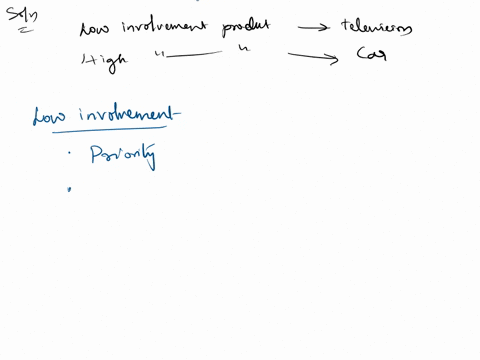 Soln
Low involvement product → television
High " —— " → Car
Low involvement
• Priority
•